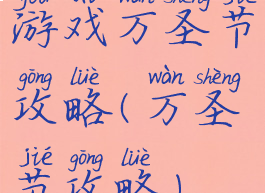 yóu xì wàn shèng jié
游戏万圣节
gōng lüè wàn shèng
攻略(万圣
jié gōng lüè
节攻略)